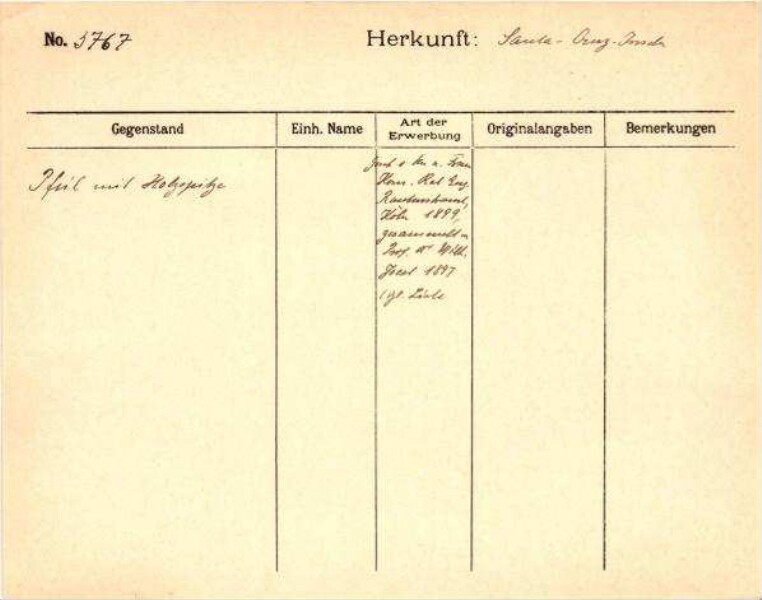 No. 3767 Herkunft: Santa-Cruz-Inseln
Gegenstand Einh. Name Art der Erwerbung Originalangaben Bemerkungen
Pfeil mit Holzspitze
Gesch. v. Hrn. u. Frau
Kom. Rat Eug.
Rautenstrauch,
Köln 1899,
gesammelt v.
Prof. Dr Wilh.
Joest 1897
vgl. Liste